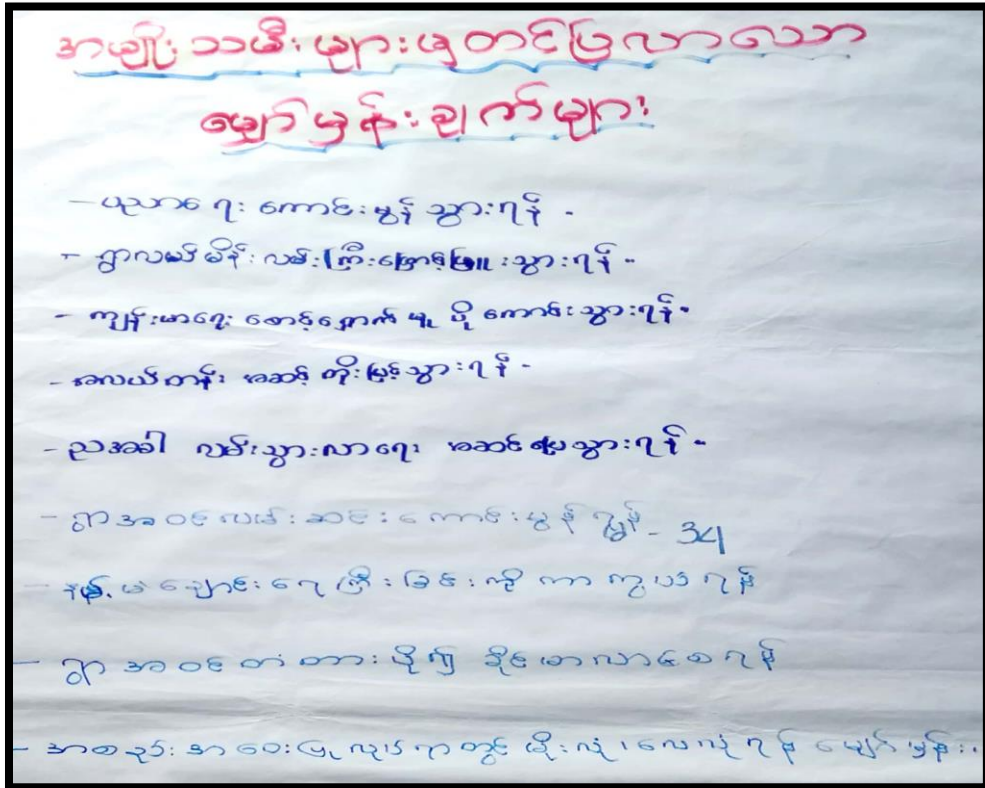 အမျိုးသမီးများမှတင်ပြလာသော
မျှော်မှန်းချက်များ
- ပညာရေး ကောင်းမွန်သွားရန် -
- ရွာလယ်မိန်းလမ်းကြီးဖြောင့်ဖြူးသွားရန် -
- ကျန်းမာရေး စောင့်ရှောက်မှု ပိုကောင်းသွားရန် -
- အလယ်တန်း အဆင့်တိုးမြှင့်သွားရန် -
- ညအခါ လမ်းသွားလာရေး အဆင်ပြေသွားရန် -
- ရွာအဝင်လမ်းဆင်းကောင်းမွန် - 34
- ချောင်းရေကြီးခြင်းကိုကာကွယ်ရန်
- ရွာအဝင်တံတားပို၍ ခိုင်မာလာစေရန်
- အစည်းအဝေးပြုလုပ်ရာတွင် မိုးလုံလေလုံရန် မျှော်မှန်း..